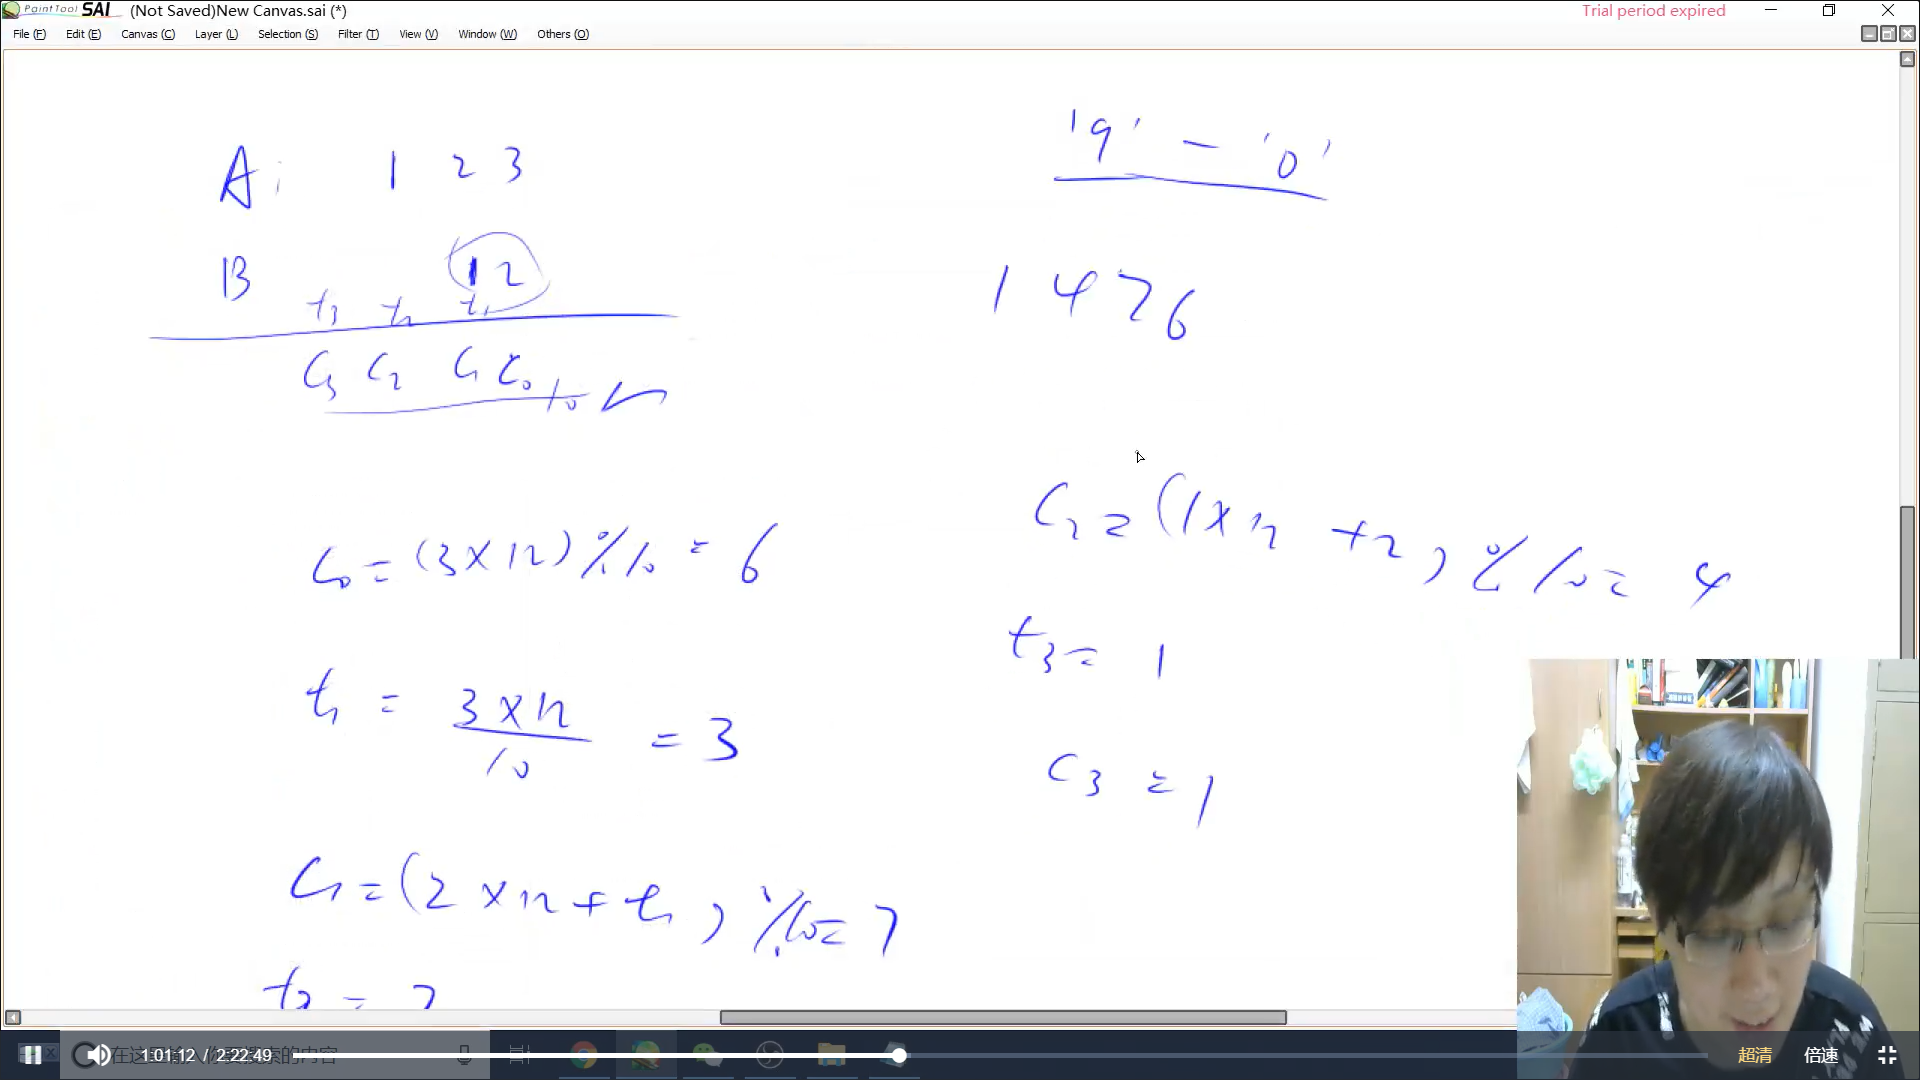 PaintTool SAI (Not Saved)New Canvas.sai (*)
Trial period expired
File (F) Edit (E) Canvas (C) Layer (L) Selection (S) Filter (T) View (V) Window (W) Others (O)
A: 1 2 3
B 12
t3 t2 t1
C3 C2 C1 C0 t0
C0 = (3×12) % 10 = 6
t1 = 3×12 / 10 = 3
C1 = (2×12 + t1) % 10 = 7
t2 = 2
'9' - '0'
1 4 7 6
C2 = (1×12 + 2) % 10 = 4
t3 = 1
C3 = 1
在这里输入你要搜索的内容
1:01:12 / 2:22:49
超清 倍速